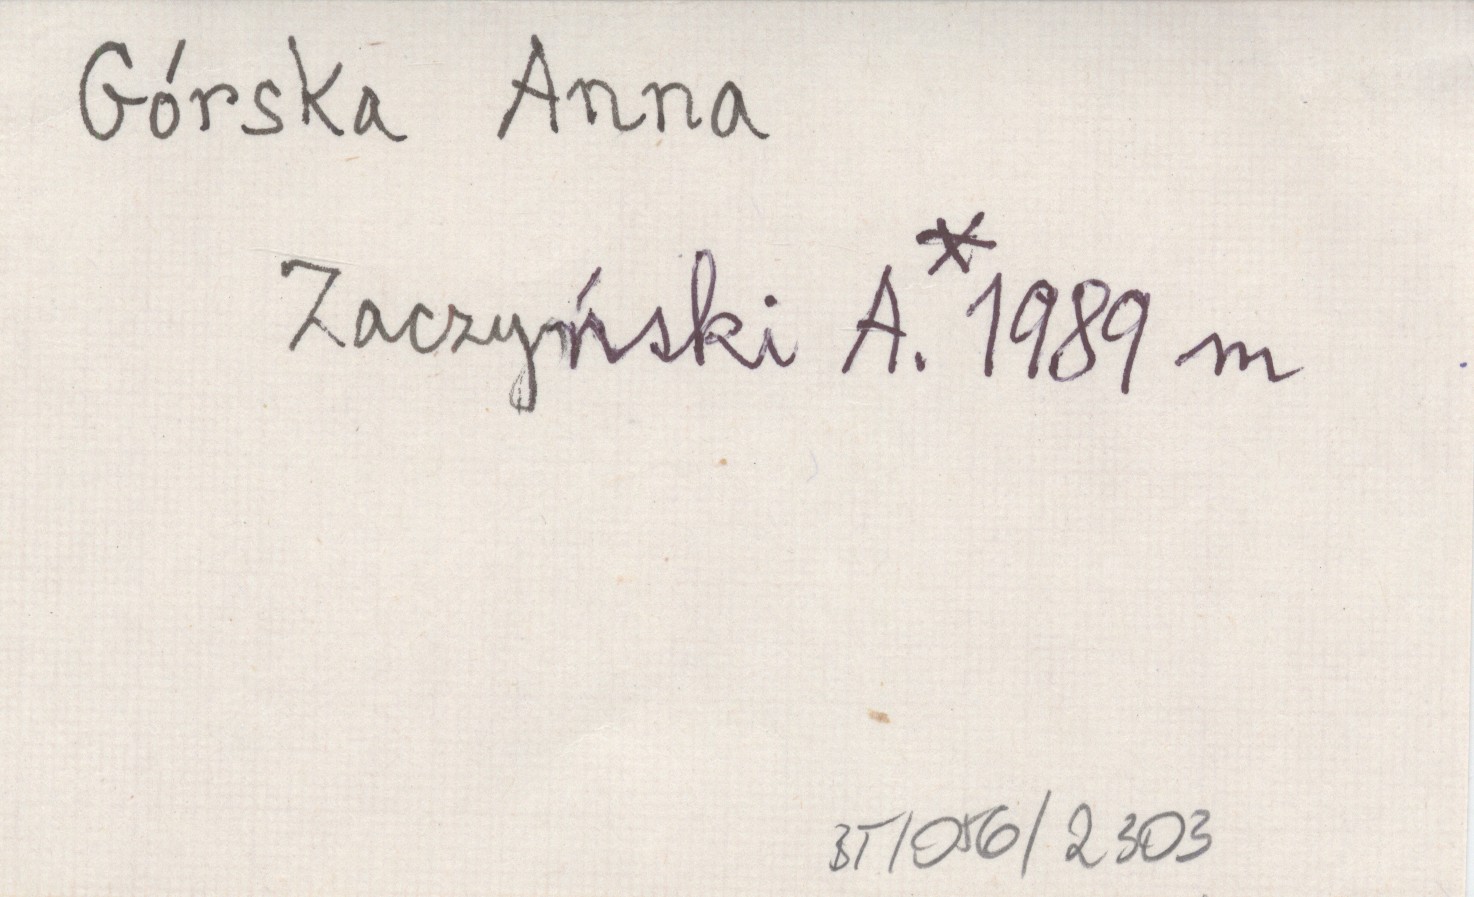 Górska Anna
Zaczyński A.* 1989 m
BT/056/2303